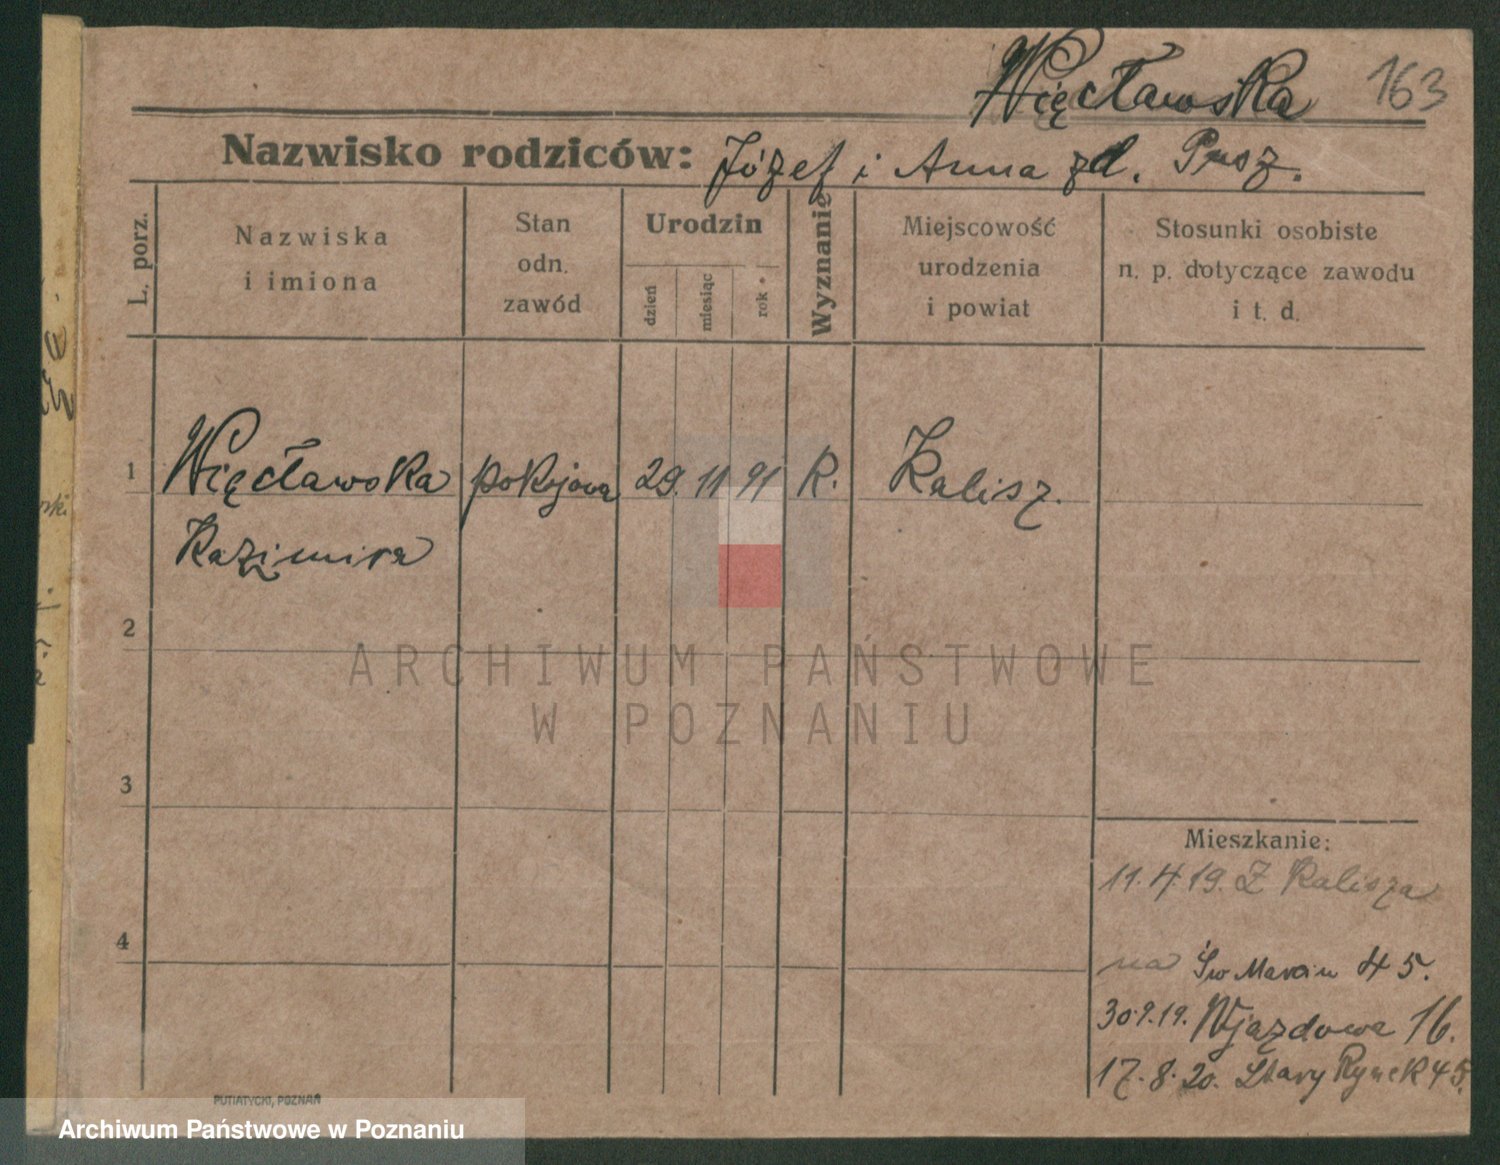 Więcławska 163
Nazwisko rodziców: Józef i Anna zd. Prsz.
L. porz.
Nazwiska
i imiona
Stan
odn.
zawód
Urodzin
dzień
miesiąc
rok
Wyznanie
Miejscowość
urodzenia
i powiat
Stosunki osobiste
n. p. dotyczące zawodu
i t. d.
1 Więcławska pokojowa 29. 11 91 R. Kalisz.
Kazimira
2
3
4
Mieszkanie:
11.4.19. Z Kalisza
na Św Marcin 45.
30.9.19. Wjazdowa 16.
17.8.20. Stary Rynek 45.
PUTIATYCKI, POZNAŃ
ARCHIWUM PAŃSTWOWE
W POZNANIU
Archiwum Państwowe w Poznaniu